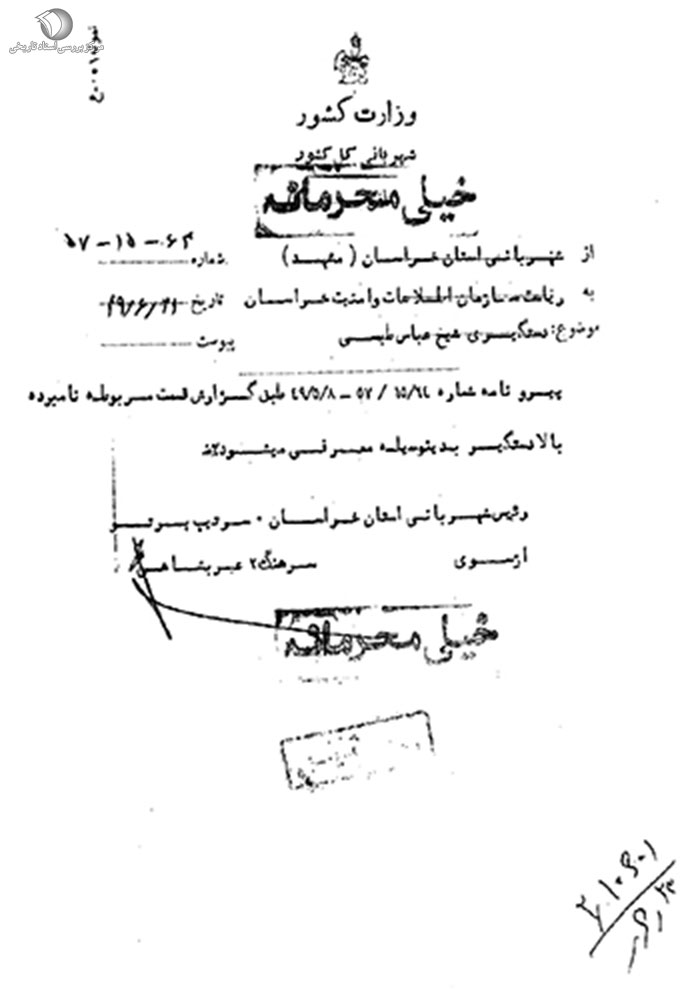 مرکز بررسی اسناد تاریخی
وزارت کشور
شهربانی کل کشور
خیلی محرمانه
از شهربانی استان خراسان (مشهد) شماره ۶۴-۱۵-۵۷
به ریاست سازمان اطلاعات و امنیت خراسان تاریخ
موضوع: دستگیری شیخ عباس طبسی پیوست
پیرو نامه شماره ۱۵/۶۴ / ۵۷ - ۴۹/۵/۸ طبق گزارش قسمت مربوطه نامبرده
بالا دستگیر بدینوسیله معرفی میشود
رئیس شهربانی استان خراسان ۰ سرتیپ پرتو
از سوی سرهنگ۲
خیلی محرمانه